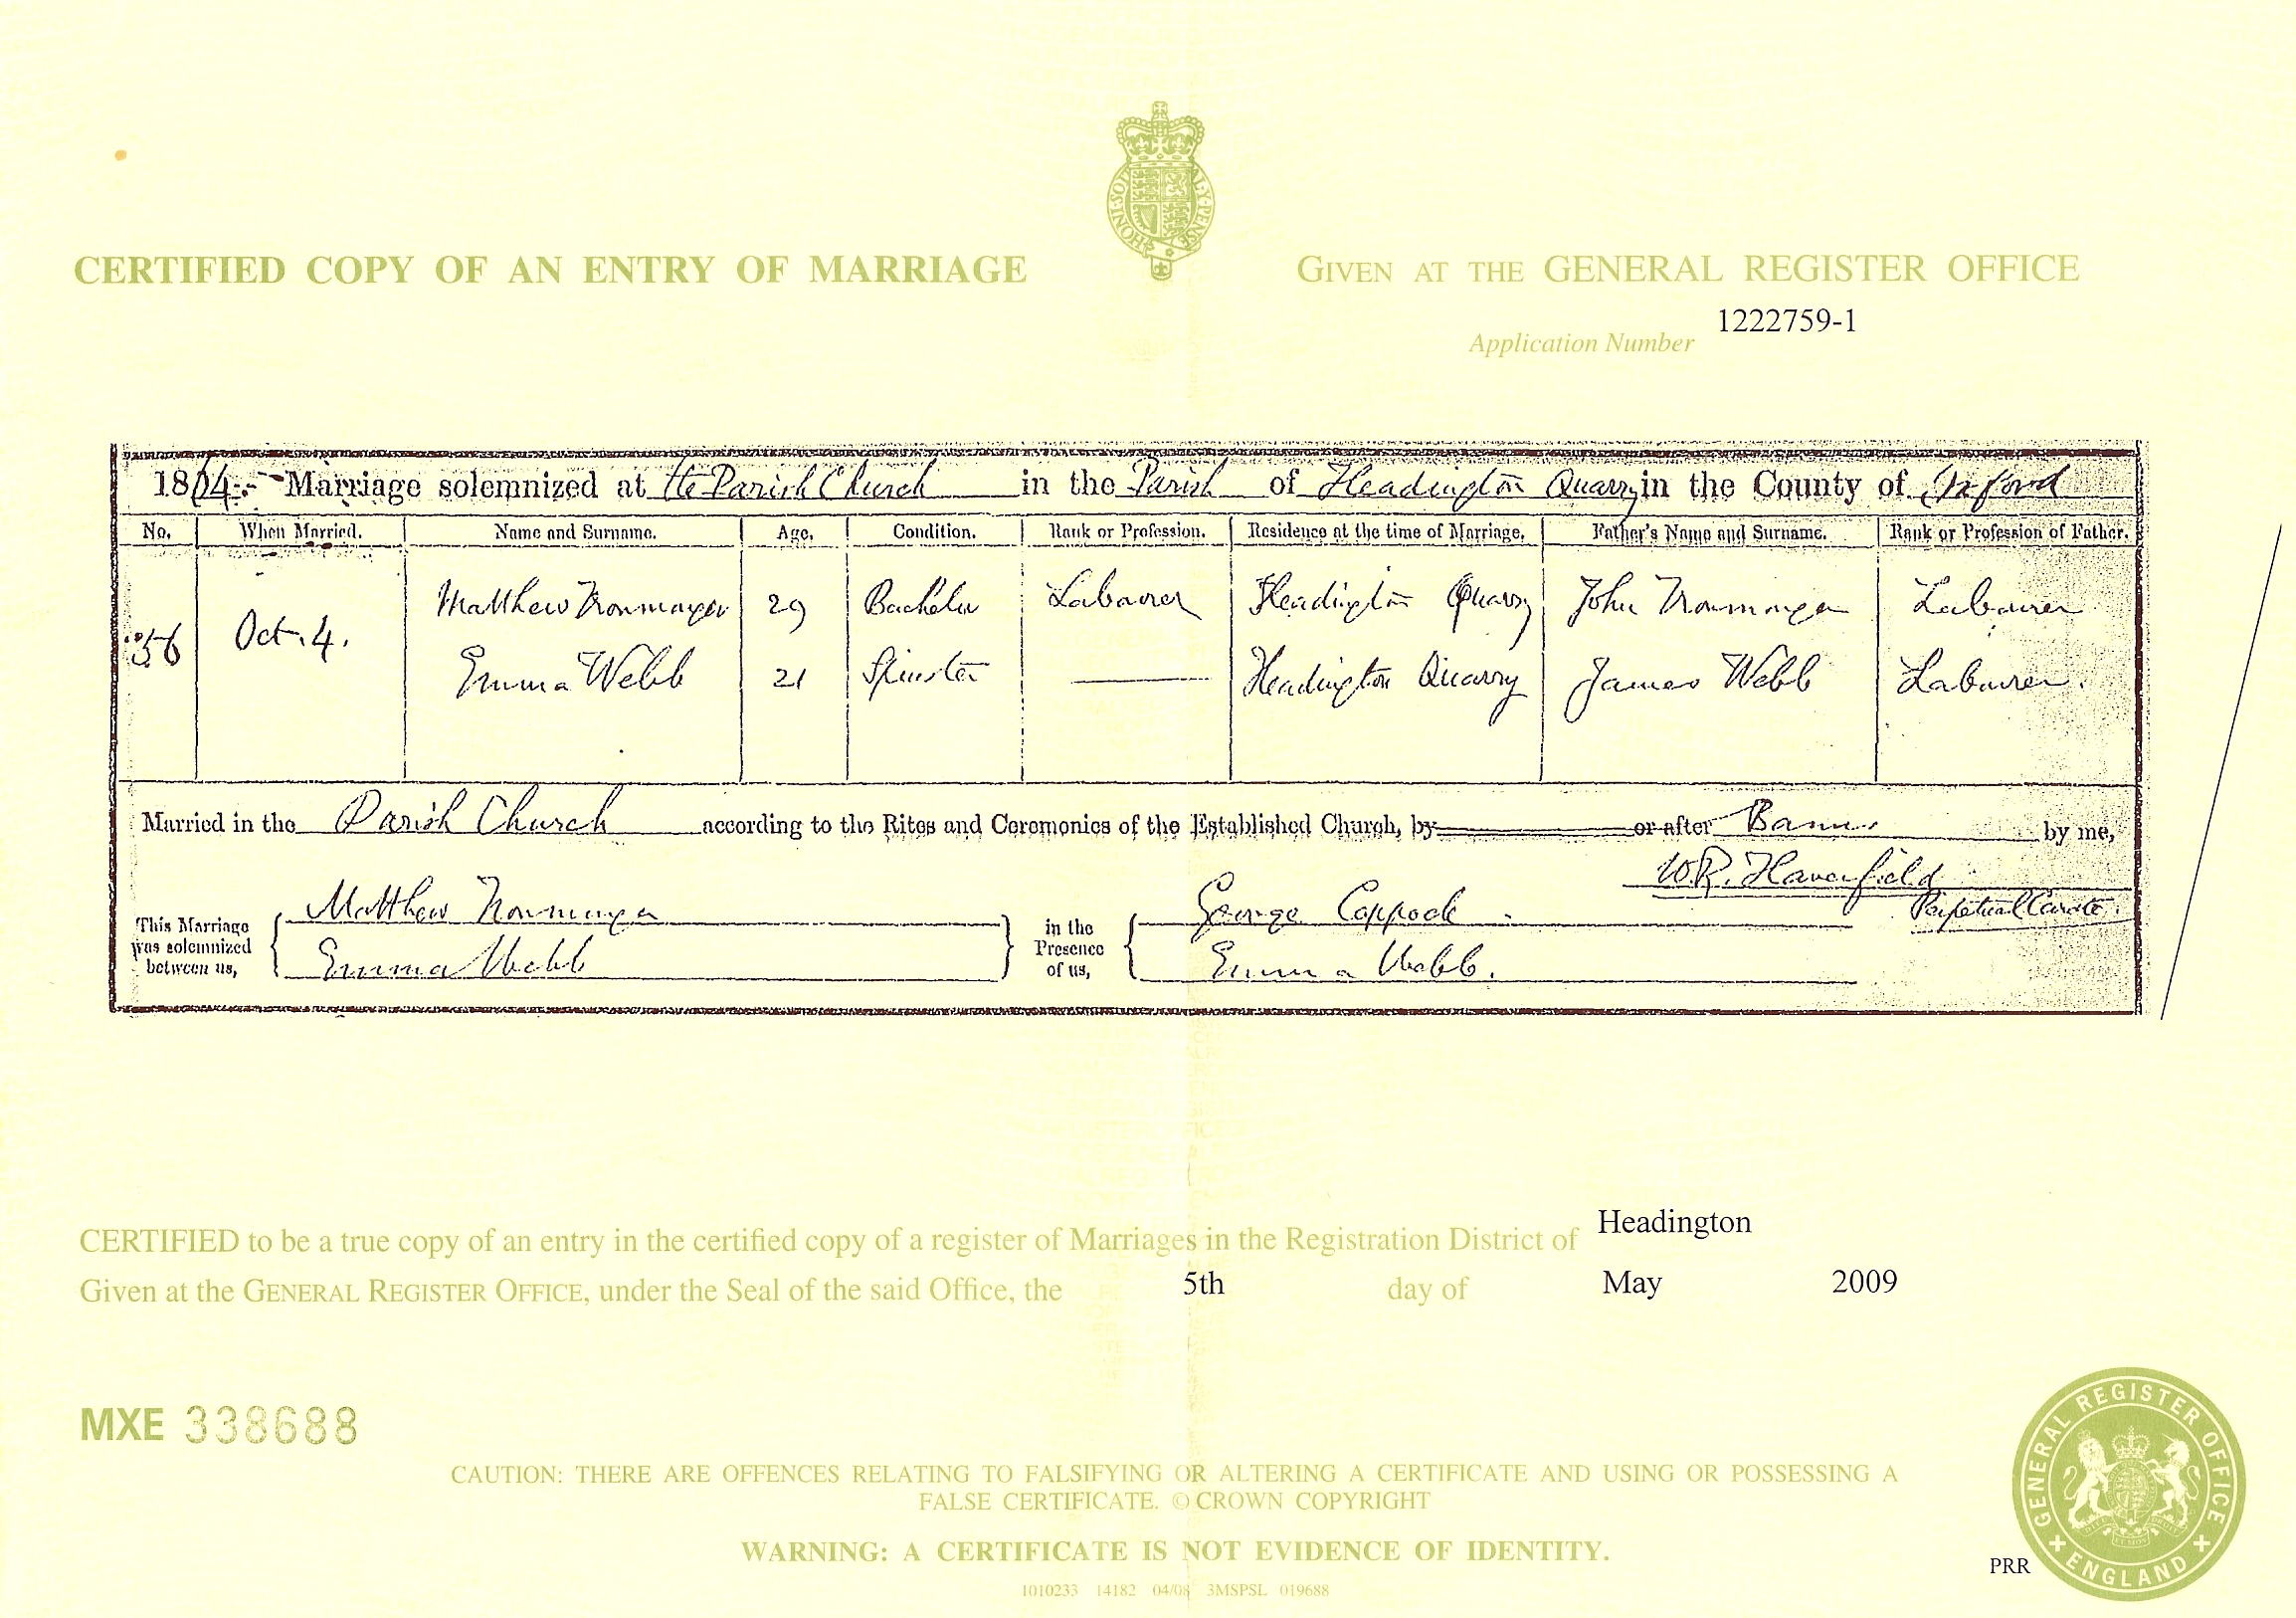 HONI·SOIT Y·PENSE
CERTIFIED COPY OF AN ENTRY OF MARRIAGE
GIVEN AT THE GENERAL REGISTER OFFICE
Application Number 1222759-1
Marriage solemnized at the Parish Church in the Parish of Headington Quarry in the County of Oxford
No. When Married. Name and Surname. Age. Condition. Rank or Profession. Residence at the time of Marriage. Father's Name and Surname. Rank or Profession of Father.
56 Oct. 4. Matthew 29 Bachelor Labourer Headington Quarry John Labourer
Emma Webb 21 Spinster Headington Quarry James Webb Labourer.
Married in the Parish Church according to the Rites and Ceremonies of the Established Church, by or after Banns by me,
W.R. Haverfield
Perpetual Curate.
This Marriage was solemnized between us, Matthew
Emma Webb
in the Presence of us, George Coppock
Emma Webb.
CERTIFIED to be a true copy of an entry in the certified copy of a register of Marriages in the Registration District of Headington
Given at the GENERAL REGISTER OFFICE, under the Seal of the said Office, the 5th day of May 2009
MXE 338688
CAUTION: THERE ARE OFFENCES RELATING TO FALSIFYING OR ALTERING A CERTIFICATE AND USING OR POSSESSING A
FALSE CERTIFICATE. © CROWN COPYRIGHT
WARNING: A CERTIFICATE IS NOT EVIDENCE OF IDENTITY.
1010233 14182 04/08 3MSPSL 019688
PRR
GENERAL REGISTER OFFICE
ENGLAND